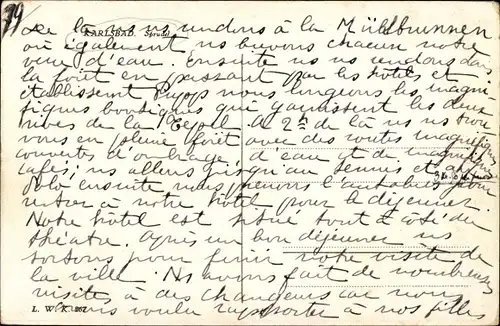 79
KARLSBAD. Sprudel
De là ns ns rendons à la Mühlbrunnen
où également ns buvons chacun notre
verre d'eau. Ensuite ns ns rendons dans
la forêt en passant par les hôtels et
établissent Pupp nous longeons les magni-
fiques boutiques qui garnissent les deux
rives de la Tepel. A 2h de là ns ns trou
vons en pleine forêt avec des routes magnifiques
couvertes d'ombrage, d'eau et de
cafés; ns allons jusqu'au tennis et au
polo ensuite nous prenons l'autobus pour
rentrer à notre hôtel pour le déjeuner.
Notre hôtel est situé tout à côté du
théatre. Après un bon déjeuner ns
sortons pour finir notre visite de
la ville. Ns avons fait de nombreuses
visites à des changeurs car nous
L. W. K. 267
avons voulu rapporter à nos filles